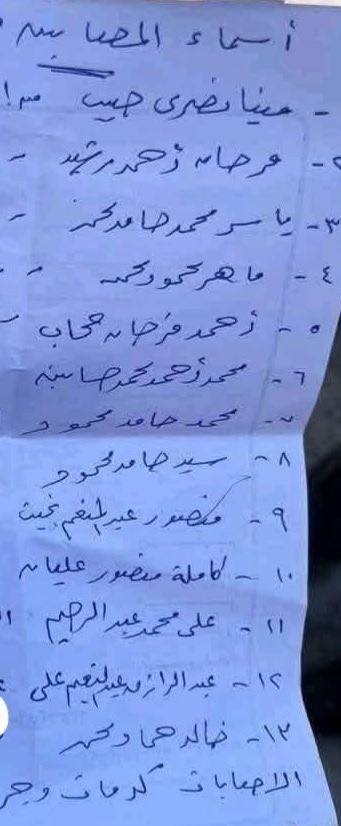 أسماء المصابين
- مينا نصرى حبيب
٢- فرحان أحمد رشيد -
٣- ياسر محمد حامد محمد -
٤- ماهر محمود محمد -
٥- أحمد فرحان حجاب -
٦- محمد أحمد محمد حسانين
٧- محمد حامد محمود
٨- سيد حامد محمود
٩- منصور عبد المنعم بخيت
١٠- كاملة منصور عليان
١١- على محمد عبد الرحيم
١٢- عبد الرازق عبد النعيم على
١٣- خالد حماد محمد
الاصابات كدمات وجر